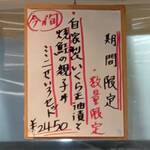 期間限定
数量限定
今旬
自家製いくら土油漬と
焼鮭の親子丼
ミニせいろセット
¥2450